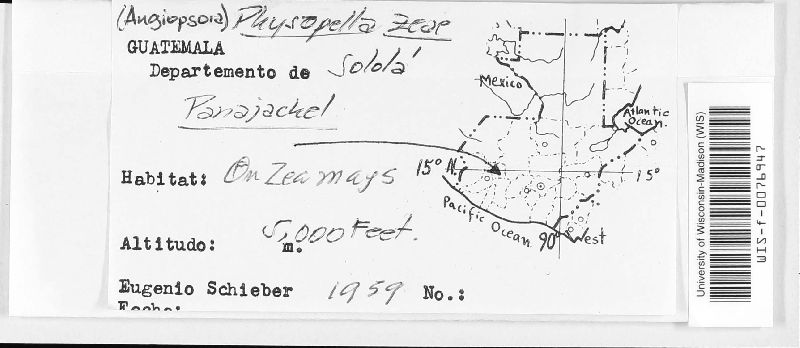 (Angiopsora) Physopella zeae
GUATEMALA
Departemento de Sololá
Panajachel
Habitat: On Zea mays
Altitudo: 5,000 Feet.
m.
Eugenio Schieber 1959 No.:
Fecha:
Mexico
Atlantic
Ocean.
15° N.
15°
Pacific Ocean
90° West
University of Wisconsin-Madison (WIS)
WIS-f-0076947